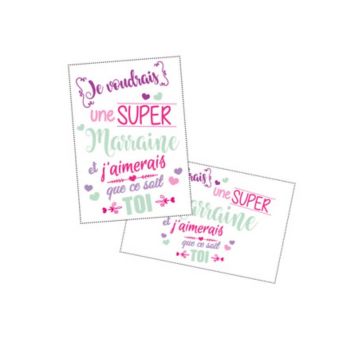 Je voudrais
une SUPER
Marraine
et j'aimerais
que ce soit
TOI
Je voudrais
une SUPER
Marraine
et j'aimerais
que ce soit
TOI